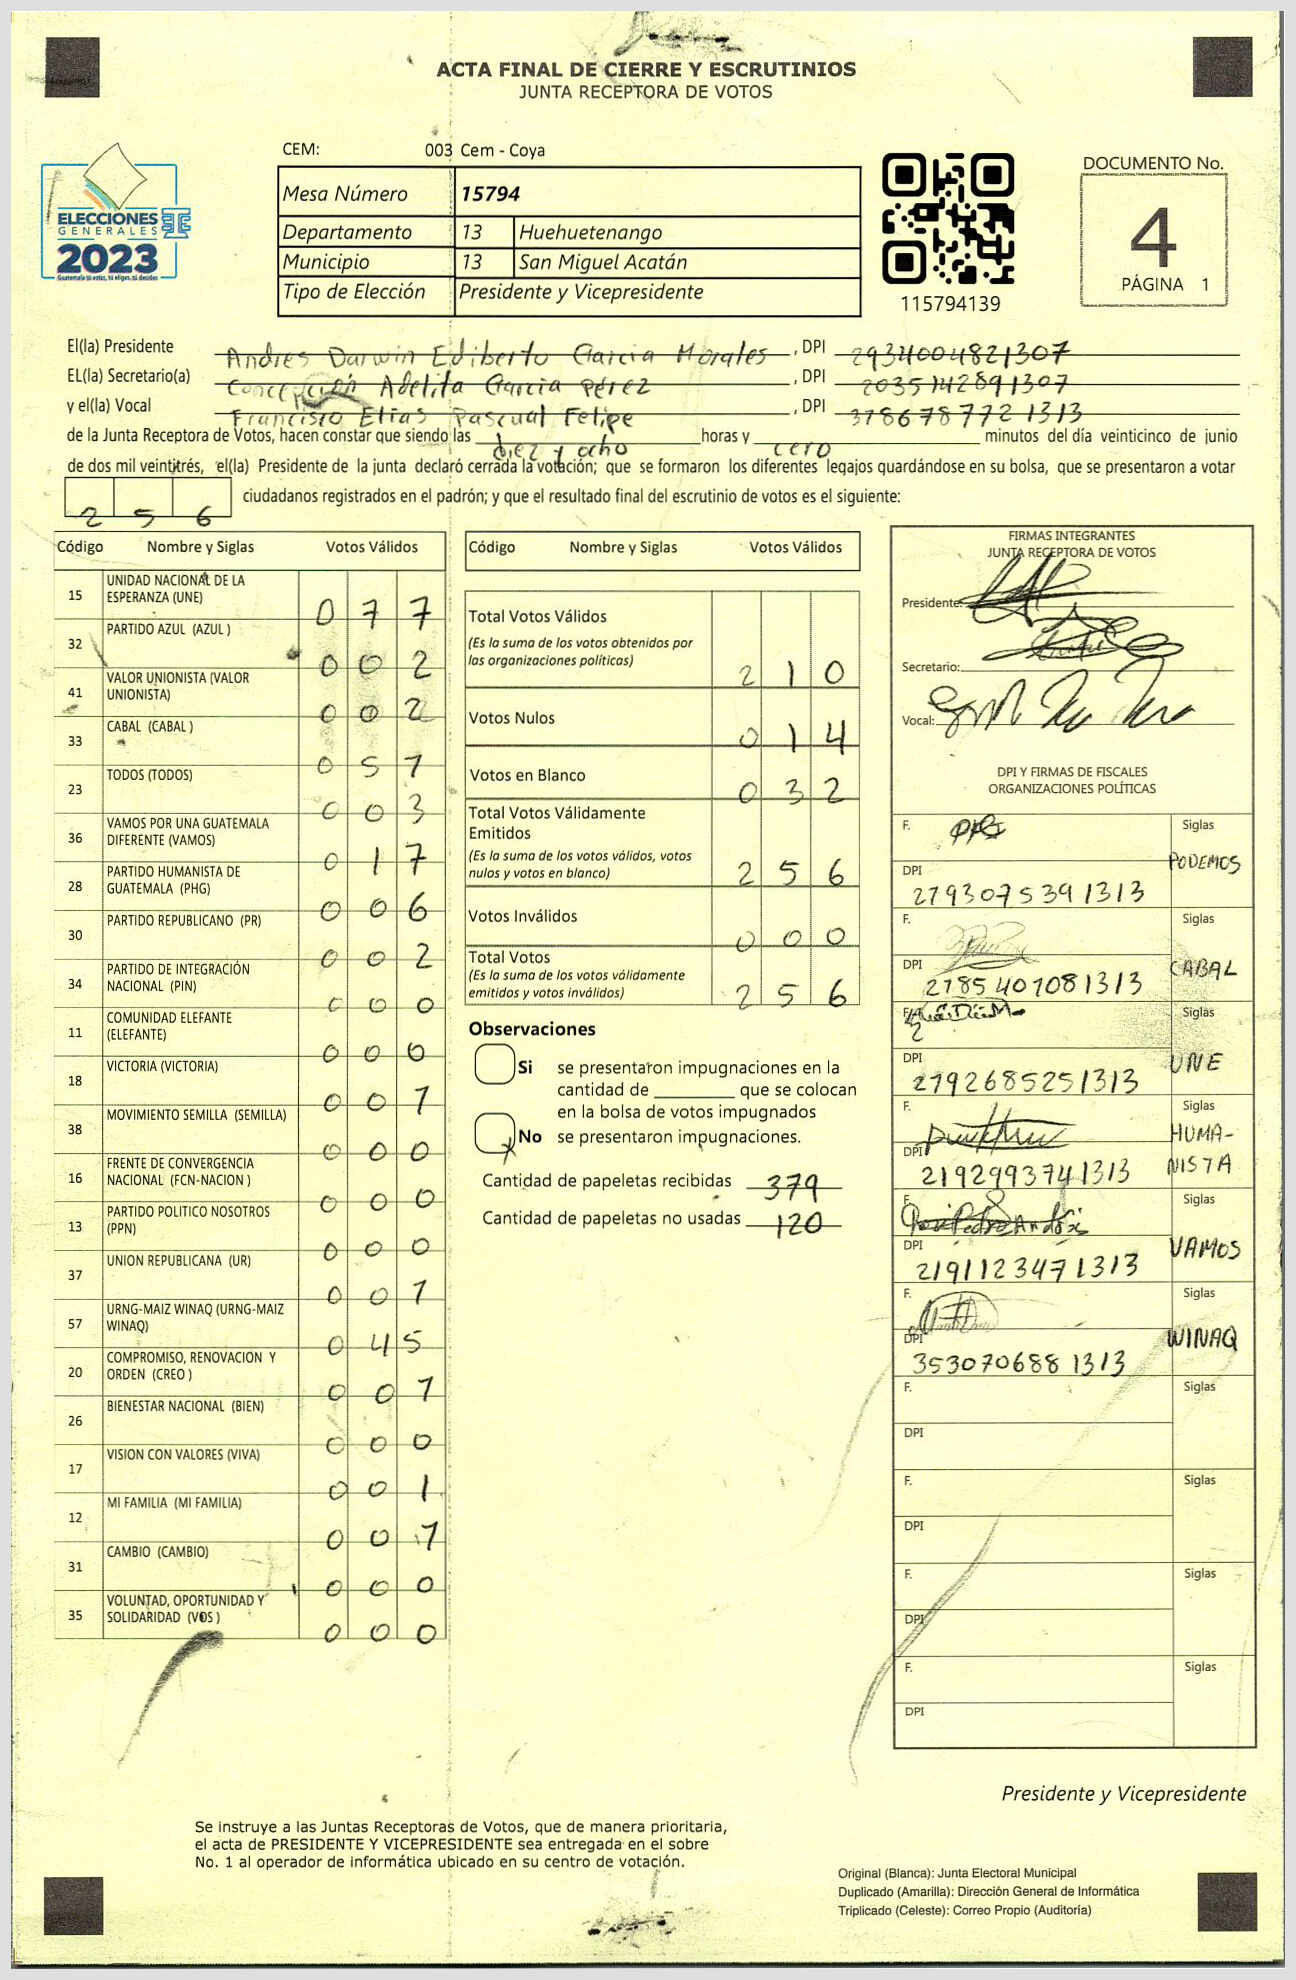 ACTA FINAL DE CIERRE Y ESCRUTINIOS
JUNTA RECEPTORA DE VOTOS
CEM: 003 Cem - Coya
Mesa Número 15794
Departamento 13 Huehuetenango
Municipio 13 San Miguel Acatán
Tipo de Elección Presidente y Vicepresidente
ELECCIONES
GENERALES
2023
Guatemala tú votas, tú eliges, tú decides
115794139
DOCUMENTO No.
4
PÁGINA 1
El(la) Presidente Andres Darwin Ediberto Garcia Morales , DPI 2934004821307
EL(la) Secretario(a) Concepción Adelita Garcia Pérez , DPI 2035142891307
y el(la) Vocal Francisco Elias Pascual Felipe , DPI 3786787721313
de la Junta Receptora de Votos, hacen constar que siendo las diez y ocho horas y cero minutos del día veinticinco de junio
de dos mil veintitrés, el(la) Presidente de la junta declaró cerrada la votación; que se formaron los diferentes legajos quardándose en su bolsa, que se presentaron a votar
256 ciudadanos registrados en el padrón; y que el resultado final del escrutinio de votos es el siguiente:
Código Nombre y Siglas Votos Válidos
15 UNIDAD NACIONAL DE LA ESPERANZA (UNE) 077
32 PARTIDO AZUL (AZUL ) 002
41 VALOR UNIONISTA (VALOR UNIONISTA) 002
33 CABAL (CABAL ) 057
23 TODOS (TODOS) 003
36 VAMOS POR UNA GUATEMALA DIFERENTE (VAMOS) 017
28 PARTIDO HUMANISTA DE GUATEMALA (PHG) 006
30 PARTIDO REPUBLICANO (PR) 002
34 PARTIDO DE INTEGRACIÓN NACIONAL (PIN) 000
11 COMUNIDAD ELEFANTE (ELEFANTE) 000
18 VICTORIA (VICTORIA) 001
38 MOVIMIENTO SEMILLA (SEMILLA) 000
16 FRENTE DE CONVERGENCIA NACIONAL (FCN-NACION ) 000
13 PARTIDO POLITICO NOSOTROS (PPN) 000
37 UNION REPUBLICANA (UR) 001
57 URNG-MAIZ WINAQ (URNG-MAIZ WINAQ) 045
20 COMPROMISO, RENOVACION Y ORDEN (CREO ) 001
26 BIENESTAR NACIONAL (BIEN) 000
17 VISION CON VALORES (VIVA) 001
12 MI FAMILIA (MI FAMILIA)
31 CAMBIO (CAMBIO) 000
35 VOLUNTAD, OPORTUNIDAD Y SOLIDARIDAD (VOS ) 000
Código Nombre y Siglas Votos Válidos
Total Votos Válidos 210
(Es la suma de los votos obtenidos por
las organizaciones políticas)
Votos Nulos 014
Votos en Blanco 032
Total Votos Válidamente
Emitidos 256
(Es la suma de los votos válidos, votos
nulos y votos en blanco)
Votos Inválidos 000
Total Votos 256
(Es la suma de los votos válidamente
emitidos y votos inválidos)
Observaciones
Si se presentaron impugnaciones en la
cantidad de ________ que se colocan
en la bolsa de votos impugnados
x No se presentaron impugnaciones.
Cantidad de papeletas recibidas 379
Cantidad de papeletas no usadas 120
FIRMAS INTEGRANTES
JUNTA RECEPTORA DE VOTOS
Presidente:
Secretario:
Vocal:
DPI Y FIRMAS DE FISCALES
ORGANIZACIONES POLÍTICAS
F. Siglas
PODEMOS
DPI 2793075391313
F. Siglas
CABAL
DPI 2785407081313
F. Siglas
UNE
DPI 2792685251313
F. Siglas
HUMA-
NISTA
DPI 2192993741313
F. Siglas
VAMOS
DPI 2191123471313
F. Siglas
WINAQ
DPI 3530706881313
F. Siglas
DPI
F. Siglas
DPI
F. Siglas
DPI
F. Siglas
DPI
Presidente y Vicepresidente
Se instruye a las Juntas Receptoras de Votos, que de manera prioritaria,
el acta de PRESIDENTE Y VICEPRESIDENTE sea entregada en el sobre
No. 1 al operador de informática ubicado en su centro de votación.
Original (Blanca): Junta Electoral Municipal
Duplicado (Amarilla): Dirección General de Informática
Triplicado (Celeste): Correo Propio (Auditoría)